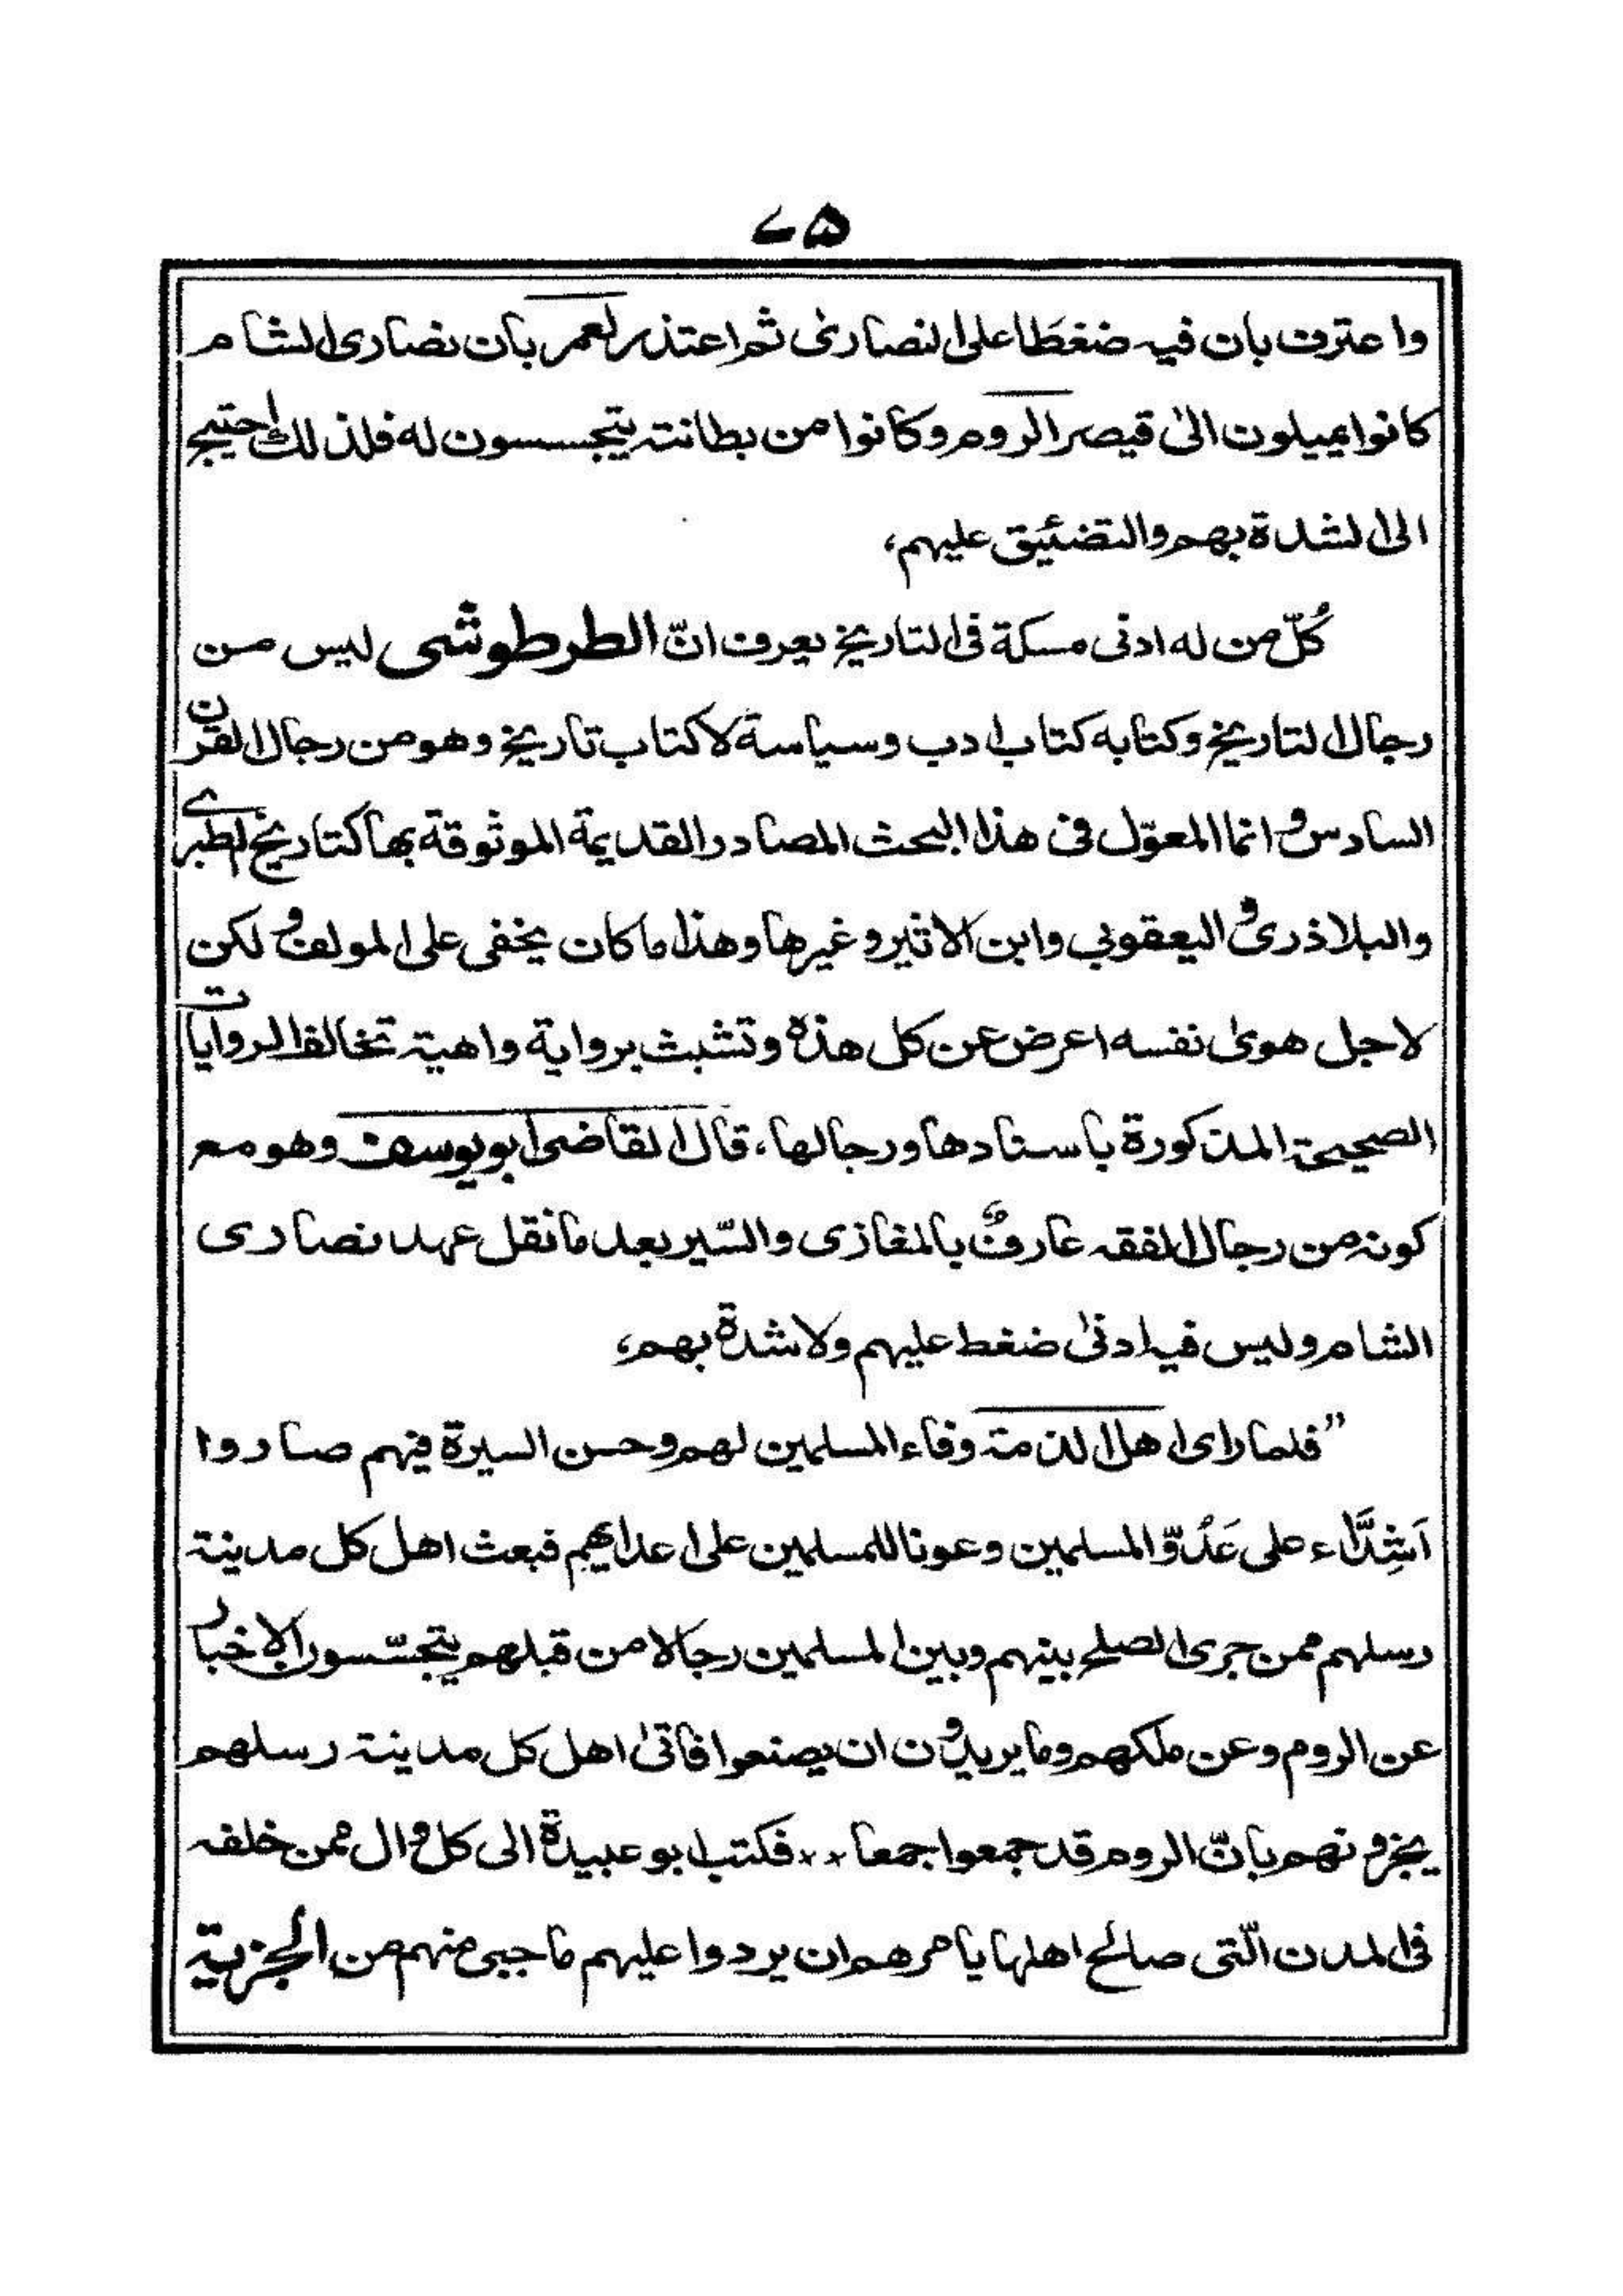 ۵۷
واعترف بان فيه ضغطًا على النصارىٰ ثم اعتذر لعمر بان نصارى الشام
كانوا يميلون الىٰ قيصر الروم وكانوا من بطانته يتجسسون له فلذلك احتيج
الى الشدة بهم والتضئيق عليهم،
كُلّ من له ادنى مسكة فى التاريخ يعرف انّ الطرطوشى ليس من
رجال التاريخ وكتابه كتاب ادب وسياسة لا كتاب تاريخ وهو من رجال القرن
السادس و انما المعوّل فى هذا البحث المصادر القديمة الموثوقة بها كتاريخ الطبرے
والبلاذرى و اليعقوبى وابن الاثير وغيرها وهذا ما كان يخفى على المولف و لكن
لاجل هوىٰ نفسه اعرض عن كل هذه وتشبث برواية واهية تخالف الروايات
الصحيحة المذكورة باسنادها ورجالها، قال القاضى ابويوسف وهو مع
كونه من رجال الفقه عارفٌ بالمغازى والسّير بعد ما نقل عهد نصارى
الشام وليس فيه ادنىٰ ضغط عليهم ولا شدة بهم،
”فلما راى اهل الذمة وفاء المسلمين لهم وحسن السيرة فيهم صاروا
اَشِدَّاء على عَدُوّ المسلمين وعونا للمسلمين على اعدائهم فبعث اهل كل مدينة
رسلهم ممن جرى الصلح بينهم وبين المسلمين رجالا من قبلهم يتجسّسون الاخبار
عن الروم وعن ملكهم وما يريدون ان يصنعوا فاتىٰ اهل كل مدينة رسلهم
يخبرونهم بانّ الروم قد جمعوا جمعا ٠٠ فكتب ابو عبيدة الى كل وال ممن خلفه
فى المدن الّتى صالح اهلها يامرهم ان يردوا عليهم ما جبى منهم من الجزية